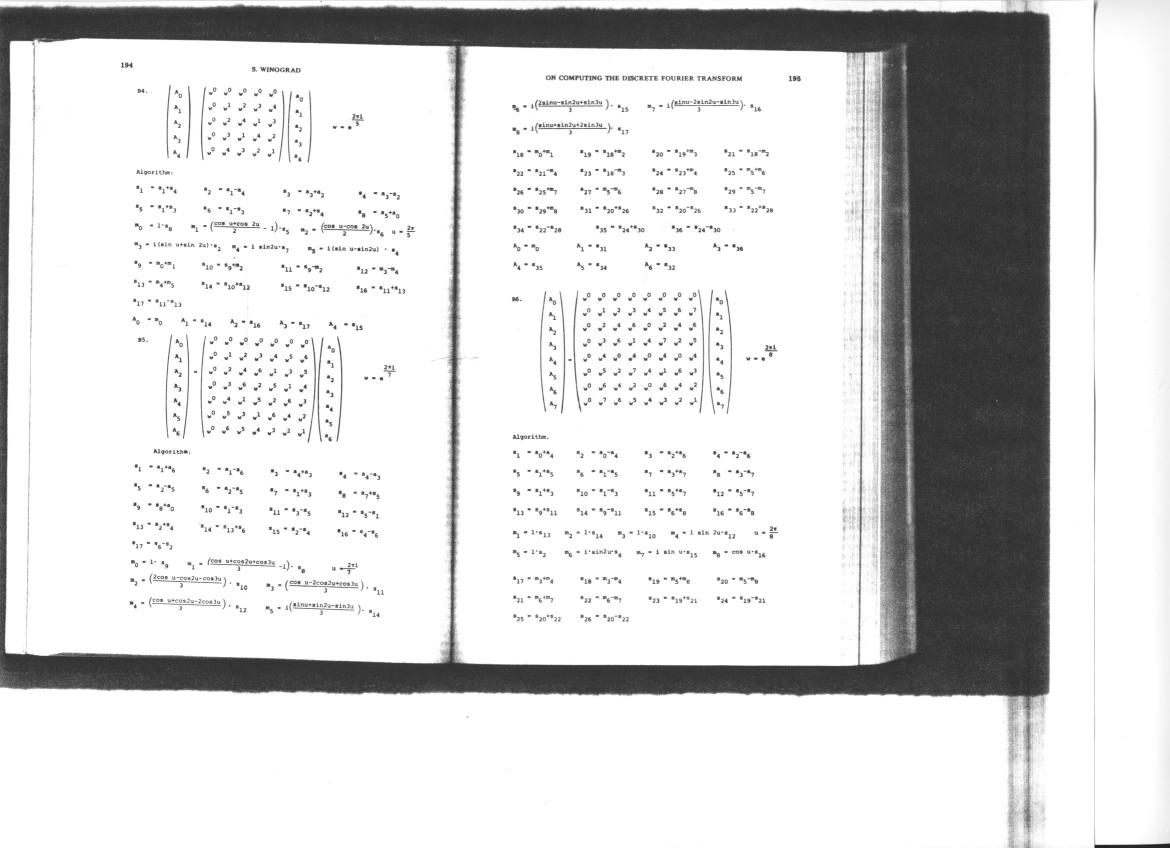 194
S. WINOGRAD
B4.
A0 w^0 w^0 w^0 w^0 w^0 a0
A1 w^0 w^1 w^2 w^3 w^4 a1
A2 w^0 w^2 w^4 w^1 w^3 a2
A3 w^0 w^3 w^1 w^4 w^2 a3
A4 w^0 w^4 w^3 w^2 w^1 a4
w = e^(2πi/5)
Algorithm:
s1 = a1+a4 s2 = a1-a4 s3 = a3+a2 s4 = a3-a2
s5 = s1+s3 s6 = s1-s3 s7 = s2+s4 s8 = s5+a0
m0 = 1·s8 m1 = ((cos u+cos 2u)/2 - 1)·s5 m2 = ((cos u-cos 2u)/2)·s6 u = 2π/5
m3 = i(sin u+sin 2u)·s2 m4 = i sin2u·s7 m5 = i(sin u-sin2u) · s4
s9 = m0+m1 s10 = s9+m2 s11 = s9-m2 s12 = m3-m4
s13 = m4+m5 s14 = s10+s12 s15 = s10-s12 s16 = s11+s13
s17 = s11-s13
A0 = m0 A1 = s14 A2 = s16 A3 = s17 A4 = s15
B5.
A0 w^0 w^0 w^0 w^0 w^0 w^0 w^0 a0
A1 w^0 w^1 w^2 w^3 w^4 w^5 w^6 a1
A2 = w^0 w^2 w^4 w^6 w^1 w^3 w^5 a2
A3 w^0 w^3 w^6 w^2 w^5 w^1 w^4 a3
A4 w^0 w^4 w^1 w^5 w^2 w^6 w^3 a4
A5 w^0 w^5 w^3 w^1 w^6 w^4 w^2 a5
A6 w^0 w^6 w^5 w^4 w^3 w^2 w^1 a6
w = e^(2πi/7)
Algorithm:
s1 = a1+a6 s2 = a1-a6 s3 = a4+a3 s4 = a4-a3
s5 = a2+a5 s6 = a2-a5 s7 = s1+s3 s8 = s7+s5
s9 = s8+a0 s10 = s1-s3 s11 = s3-s5 s12 = s5-s1
s13 = s2+s4 s14 = s13+s6 s15 = s2-s4 s16 = s4-s6
s17 = s6-s2
m0 = 1· s9 m1 = ((cos u+cos2u+cos3u)/3 -1)· s8 u = 2πi/7
m2 = ((2cos u-cos2u-cos3u)/3) · s10 m3 = ((cos u-2cos2u+cos3u)/3) · s11
m4 = ((cos u+cos2u-2cos3u)/3) · s12 m5 = i((sinu+sin2u-sin3u)/3)· s14
ON COMPUTING THE DISCRETE FOURIER TRANSFORM
195
m6 = i((2sinu-sin2u+sin3u)/3) · s15 m7 = i((sinu-2sin2u-sin3u)/3)· s16
m8 = i((sinu+sin2u+2sin3u)/3) · s17
s18 = m0+m1 s19 = s18+m2 s20 = s19+m3 s21 = s18-m2
s22 = s21-m4 s23 = s18-m3 s24 = s23+m4 s25 = m5+m6
s26 = s25+m7 s27 = m5-m6 s28 = s27-m8 s29 = m5-m7
s30 = s29+m8 s31 = s20+s26 s32 = s20-s26 s33 = s22+s28
s34 = s22-s28 s35 = s24+s30 s36 = s24-s30
A0 = m0 A1 = s31 A2 = s33 A3 = s36
A4 = s35 A5 = s34 A6 = s32
B6.
A0 w^0 w^0 w^0 w^0 w^0 w^0 w^0 w^0 a0
A1 w^0 w^1 w^2 w^3 w^4 w^5 w^6 w^7 a1
A2 w^0 w^2 w^4 w^6 w^0 w^2 w^4 w^6 a2
A3 w^0 w^3 w^6 w^1 w^4 w^7 w^2 w^5 a3
A4 = w^0 w^4 w^0 w^4 w^0 w^4 w^0 w^4 a4
A5 w^0 w^5 w^2 w^7 w^4 w^1 w^6 w^3 a5
A6 w^0 w^6 w^4 w^2 w^0 w^6 w^4 w^2 a6
A7 w^0 w^7 w^6 w^5 w^4 w^3 w^2 w^1 a7
w = e^(2πi/8)
Algorithm.
s1 = a0+a4 s2 = a0-a4 s3 = a2+a6 s4 = a2-a6
s5 = a1+a5 s6 = a1-a5 s7 = a3+a7 s8 = a3-a7
s9 = s1+s3 s10 = s1-s3 s11 = s5+s7 s12 = s5-s7
s13 = s9+s11 s14 = s9-s11 s15 = s6+s8 s16 = s6-s8
m1 = 1·s13 m2 = 1·s14 m3 = 1·s10 m4 = i sin 2u·s12 u = 2π/8
m5 = 1·s2 m6 = i·sin2u·s4 m7 = i sin u·s15 m8 = cos u·s16
s17 = m3+m4 s18 = m3-m4 s19 = m5+m8 s20 = m5-m8
s21 = m6+m7 s22 = m6-m7 s23 = s19+s21 s24 = s19-s21
s25 = s20+s22 s26 = s20-s22